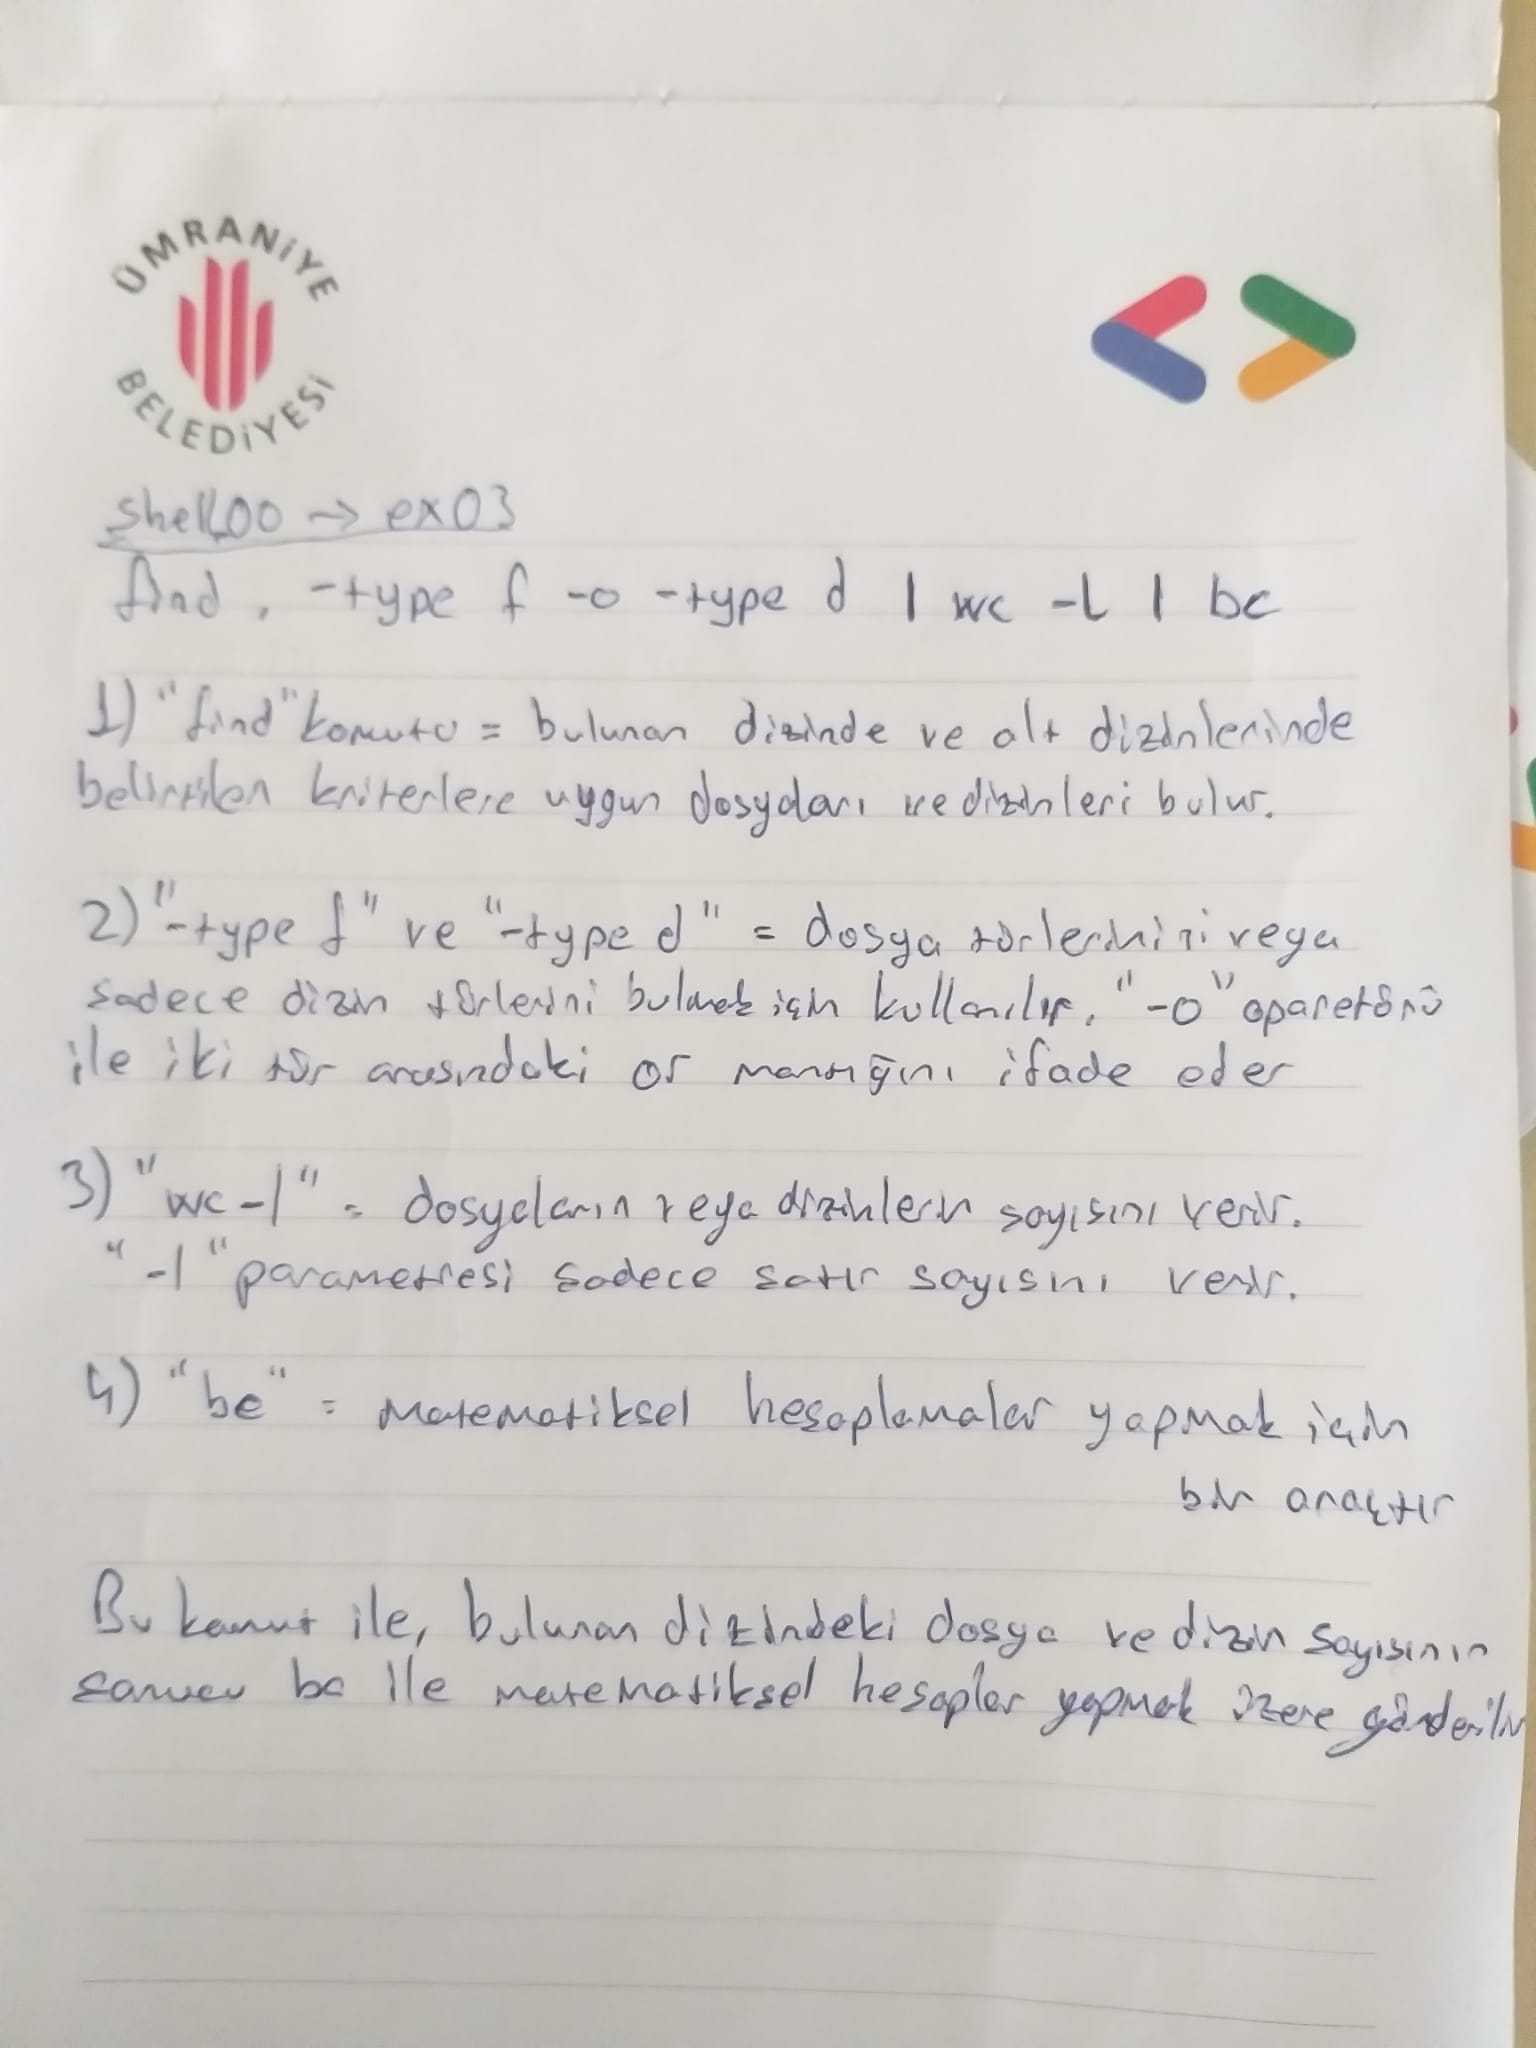 ÜMRANİYE
BELEDİYESİ
shell00 → ex03
find . -type f -o -type d | wc -l | bc
1) "find" komutu = bulunan dizinde ve alt dizinlerinde
belirtilen kriterlere uygun dosyaları ve dizinleri bulur.
2) "-type f" ve "-type d" = dosya türlerinizi veya
sadece dizin türlerini bulmak için kullanılır. "-o" oparetörü
ile iki tür arasındaki or mantığını ifade eder
3) "wc -l" = dosyaların veya dizinlerin sayısını verir.
"-l" parametresi sadece satır sayısını verir.
4) "bc" = matematiksel hesaplamalar yapmak için
bir araçtır
Bu komut ile, bulunan dizindeki dosya ve dizin sayısının
bc ile matematiksel hesaplar yapmak üzere gönderilir